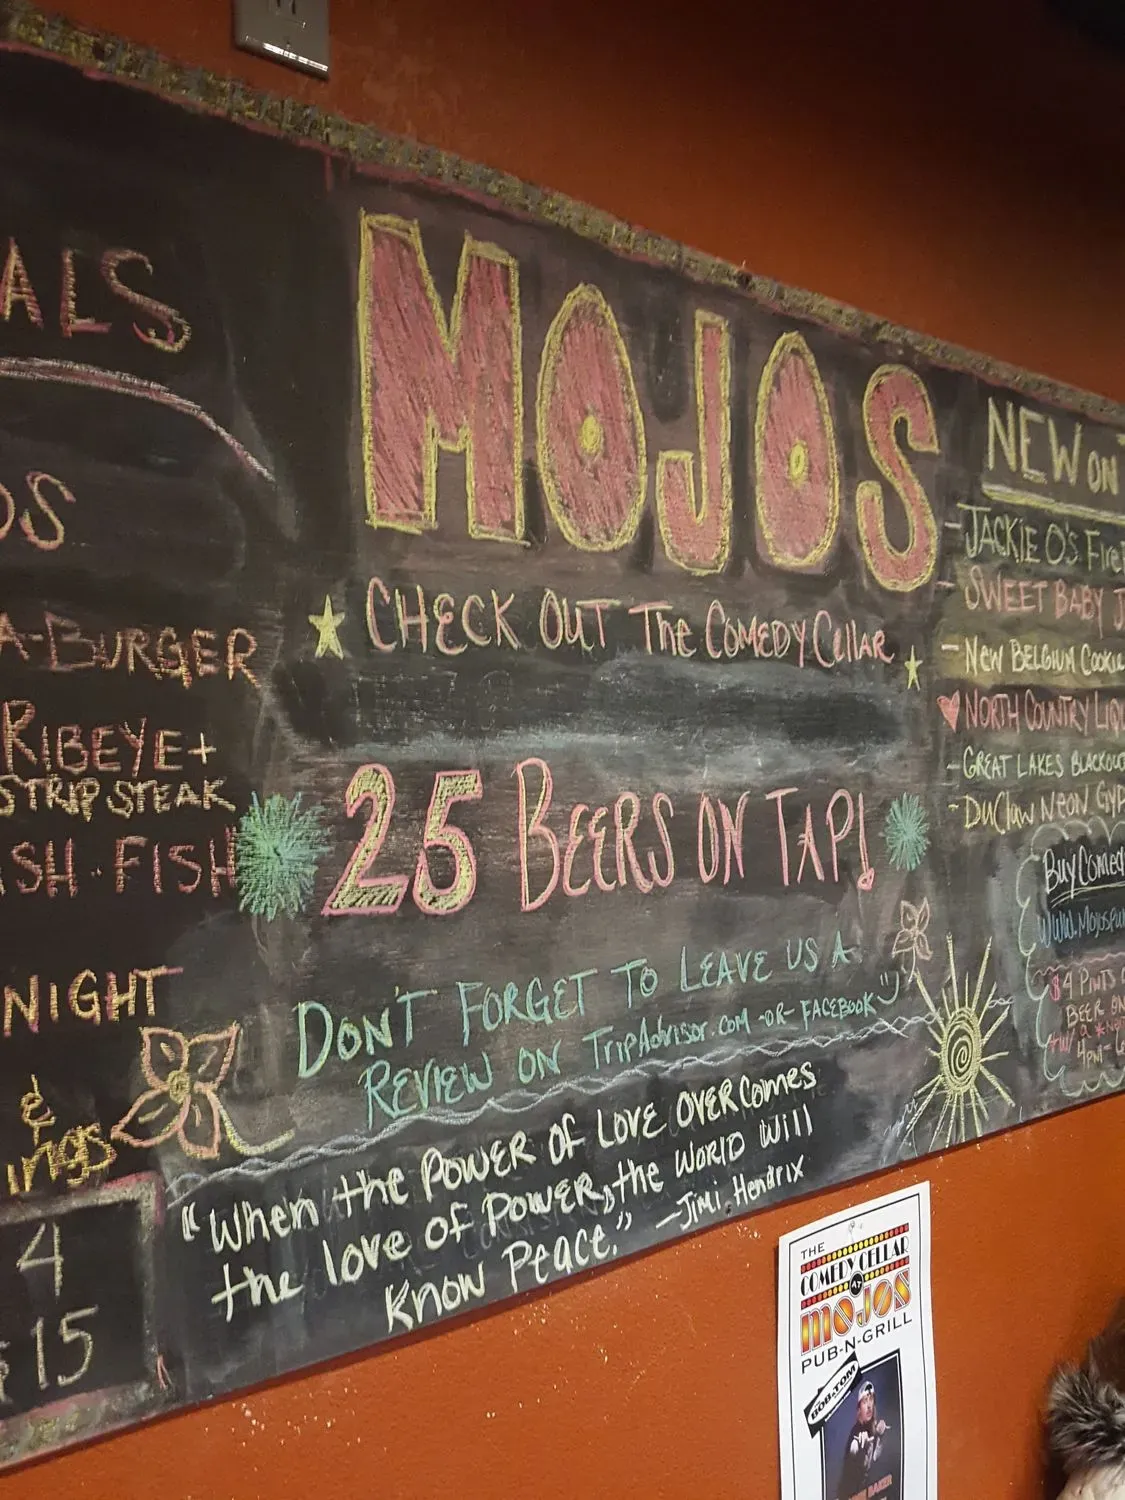 ALS
A-BURGER
RIBEYE +
STRIP STEAK
FISH
NIGHT
&
4
$15
MOJOS
CHECK OUT THE COMEDY CELLAR
25 BEERS ON TAP!
DON'T FORGET TO LEAVE US A
REVIEW ON TripAdvisor.com -OR- FACEBOOK
"When the POWER OF LOVE OVERComes
the love of POWER, the WORLD Will
KNOW Peace." -Jimi Hendrix
NEW ON
- JACKIE O'S Fire
- SWEET BABY J
- NEW BELGIUM COOKIE
NORTH COUNTRY
- GREAT LAKES BLACKOU
- DuClaw NEON GYP
BUY COMED
WWW.MOJOSPU
$4 PINTS
BEER
4PM-
THE
COMEDY CELLAR
AT
MOJOS
PUB-N-GRILL
BOB & TOM
BAKER